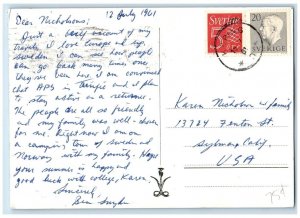 12 July 1961
Dear Nicholsons:
Quit a brief account of my
travels. I love Europe & by
Sweden I can see how people
can go back many times once
they've been here. I am convinced
that AFS is terrific and I plan
to stay active as a returnee.
The people are all so friendly
and my family was well-chosen
for me. Right now I am on
a camping tour of Sweden &
Norway with my family. Hope
your summer is happy and
good luck with college, Karen.
Sincerely,
Ben
SVERIGE
5
20
SVERIGE
Karen Nicholson & family
13724 Fenton St.
Sylmar, Calif.
USA